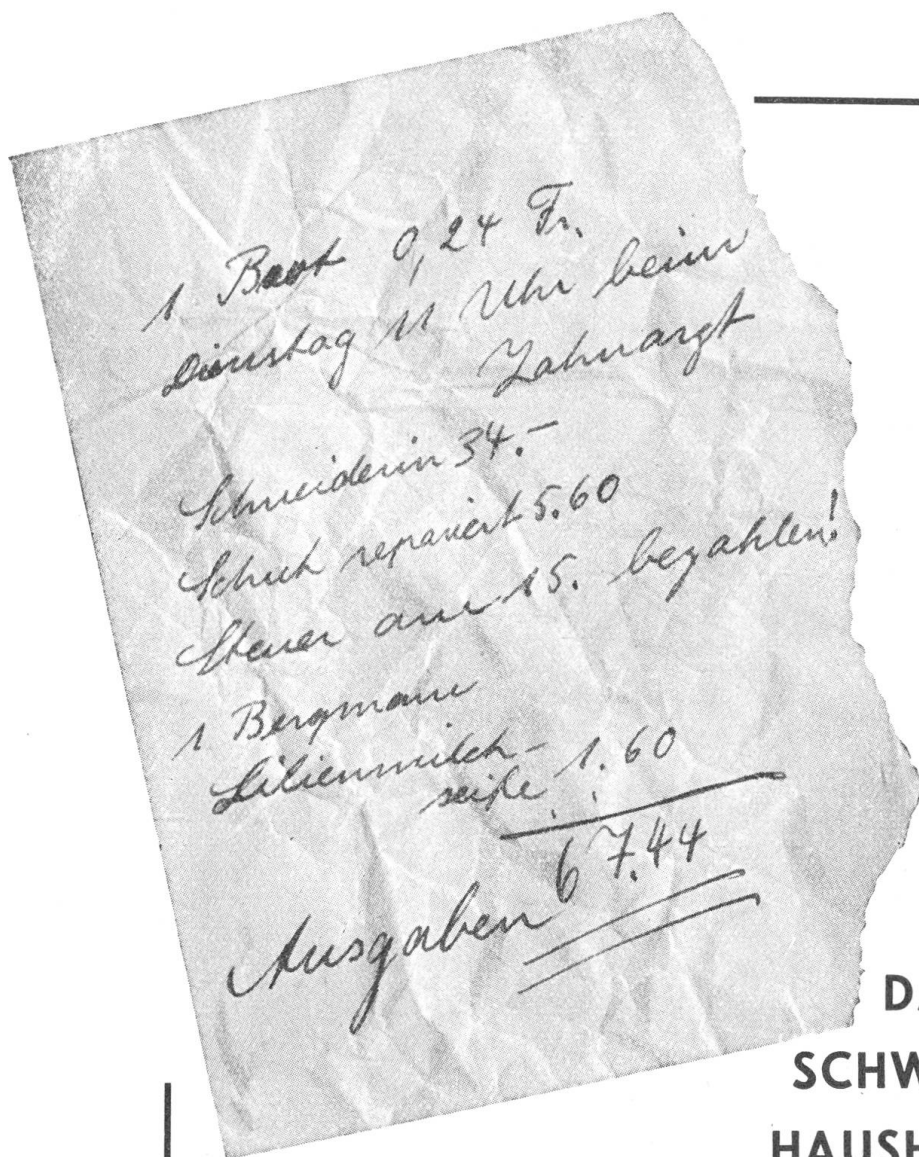 1 Brot 0,24 Fr.
Dienstag 11 Uhr beim
Zahnarzt
Schneiderin 34.-
Schuh repariert 5.60
Steuer am 15. bezahlen!
1 Bergmann
Lilienmilch-
seife 1.60
67.44
Ausgaben
DA
SCHW
HAUSH